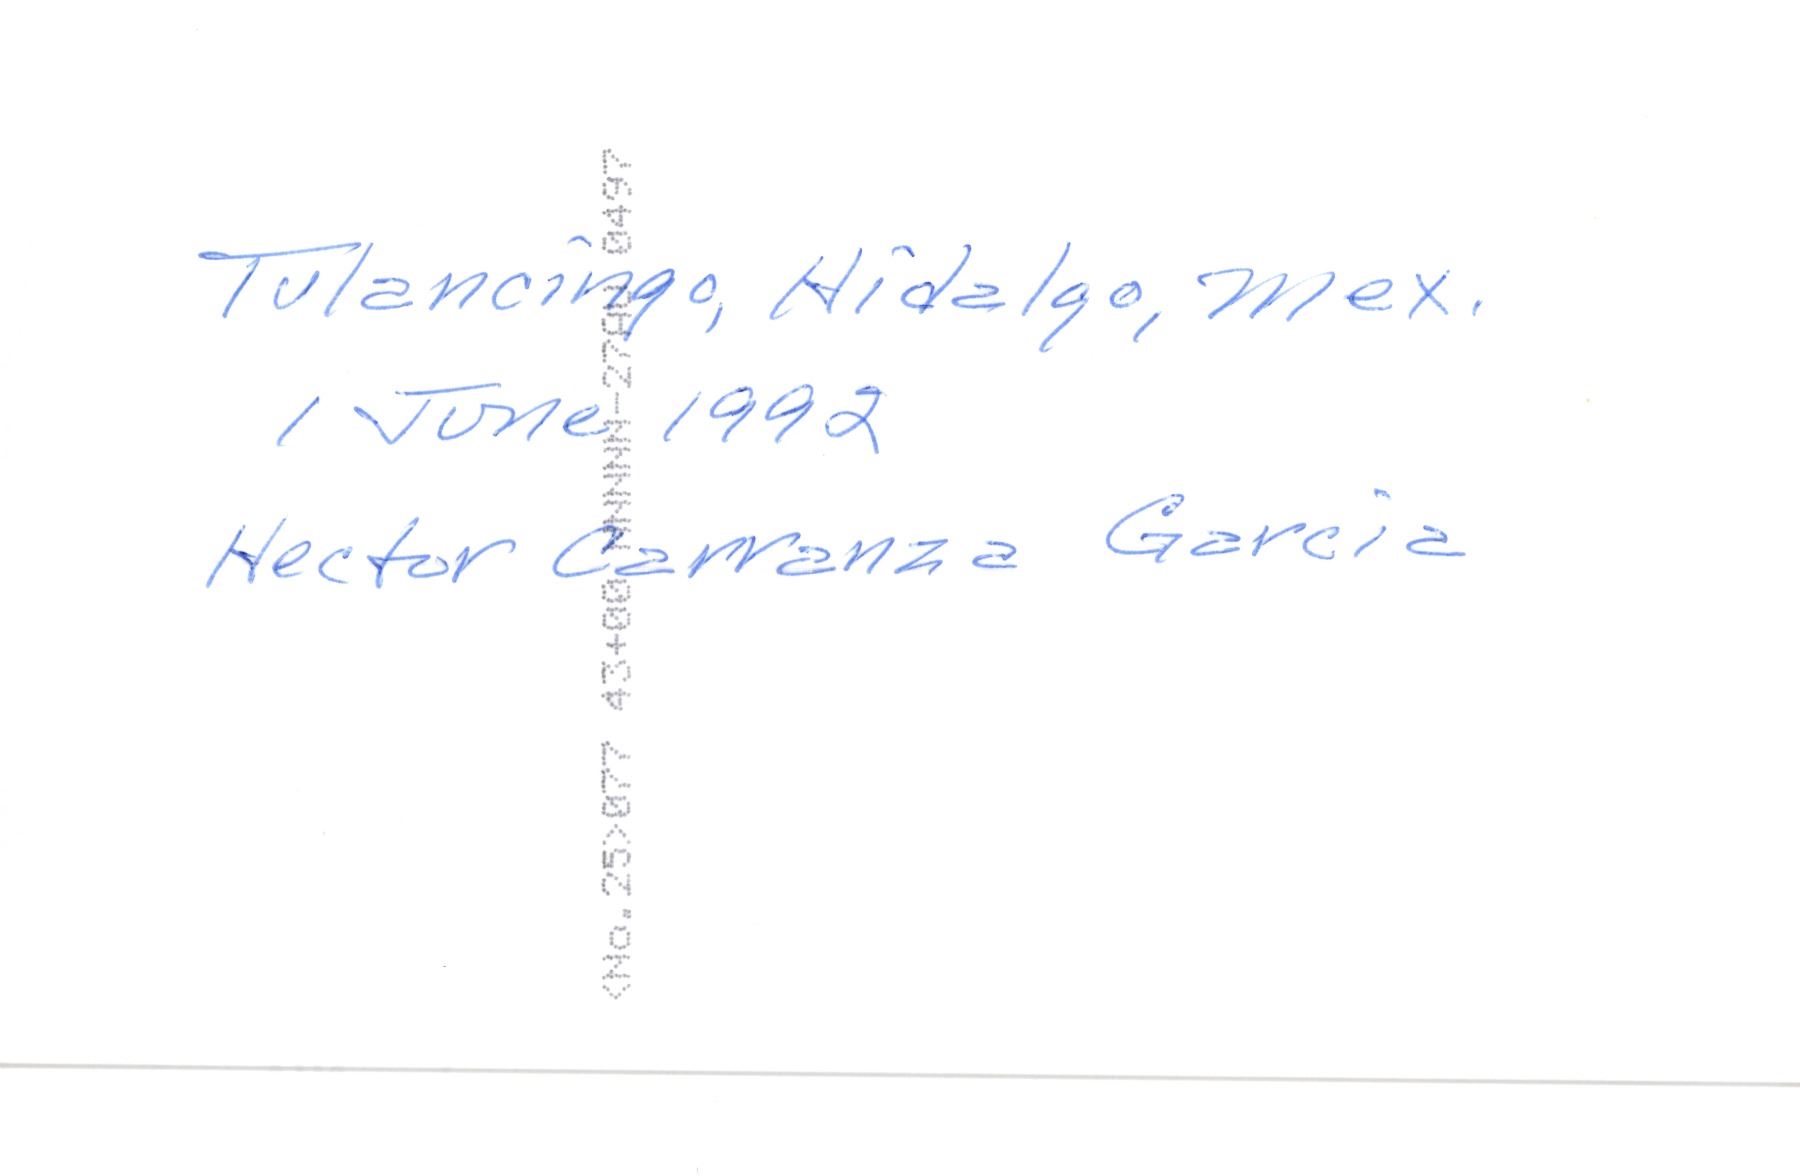 Tulancingo, Hidalgo, Mex.
1 June 1992
Hector Carranza Garcia
<No.25>077 43+00